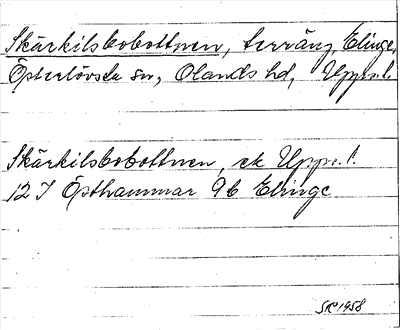 Skärkilsbobottnen, terräng, Elinge,
Österlövsta sn, Olands hd, Upps. l.
Skärkilsbobottnen, ek Upps. l.
12 I Östhammar 9b Elinge
SR 1958